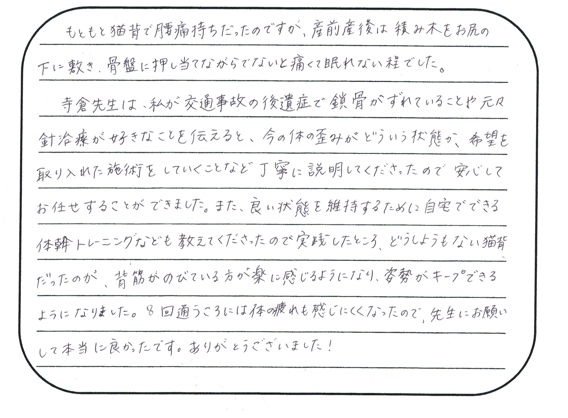 もともと猫背で腰痛持ちだったのですが、産前産後は積み木をお尻の
下に敷き、骨盤に押し当てながらでないと痛くて眠れない程でした。
寺倉先生は、私が交通事故の後遺症で鎖骨がずれていることや元々
針治療が好きなことを伝えると、今の体の歪みがどういう状態か、希望を
取り入れた施術をしていくことなど丁寧に説明してくださったので安心して
お任せすることができました。また、良い状態を維持するために自宅でできる
体幹トレーニングなども教えてくださったので実践したところ、どうしようもない猫背
だったのが、背筋がのびている方が楽に感じるようになり、姿勢がキープできる
ようになりました。8回通うころには体の疲れも感じにくくなったので、先生にお願い
して本当に良かったです。ありがとうございました!